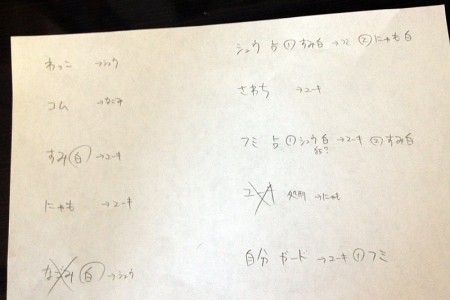 わっこ →シュウ
コム →なごみ
すみ 白 →ユーキ
にゃも →ユーキ
なごみ 白 →シュウ
シュウ 占 ① すみ白 →フミ ② にゃも白
さわち →ユーキ
フミ 占 ① シュウ 白 →ユーキ ② すみ白
ユーキ 処刑 →にゃも
自分 ガード →ユーキ ① フミ